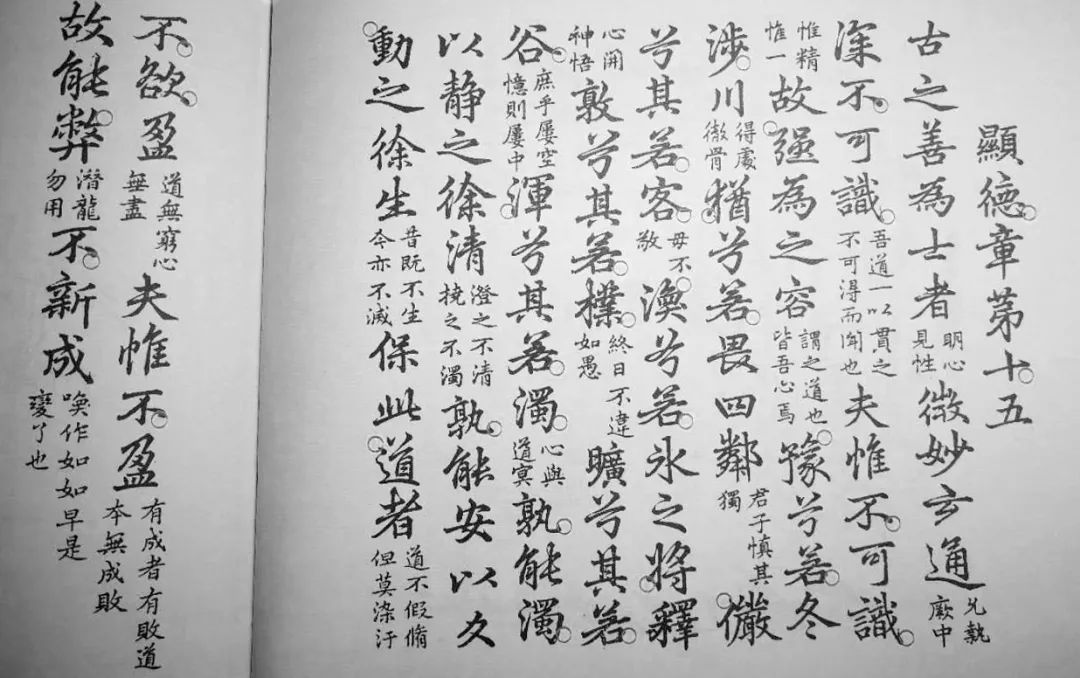 顯德章第十五
古之善為士者明心見性微妙玄通允執厥中
深不可識吾道一以貫之不可得而聞也夫惟不可識
惟精惟一故强為之容謂之道也皆吾心焉豫兮若冬
涉川得處徹骨猶兮若畏四鄰君子慎其獨儼
兮其若客毋不敬渙兮若冰之將釋
心開神悟敦兮其若樸終日不違如愚曠兮其若
谷庶乎屢空憶則屢中渾兮其若濁心與道冥孰能濁
以静之徐清澄之不清撓之不濁孰能安以久
動之徐生昔既不生今亦不滅保此道者道不假脩但莫染汙
不欲盈道無窮心無盡夫惟不盈有成者有敗道本無成敗
故能弊潛龍勿用不新成喚作如如早是變了也